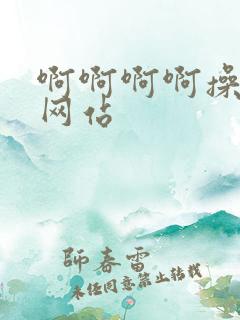 啊啊啊啊操
网佔
師春雷
未任同意禁止转载